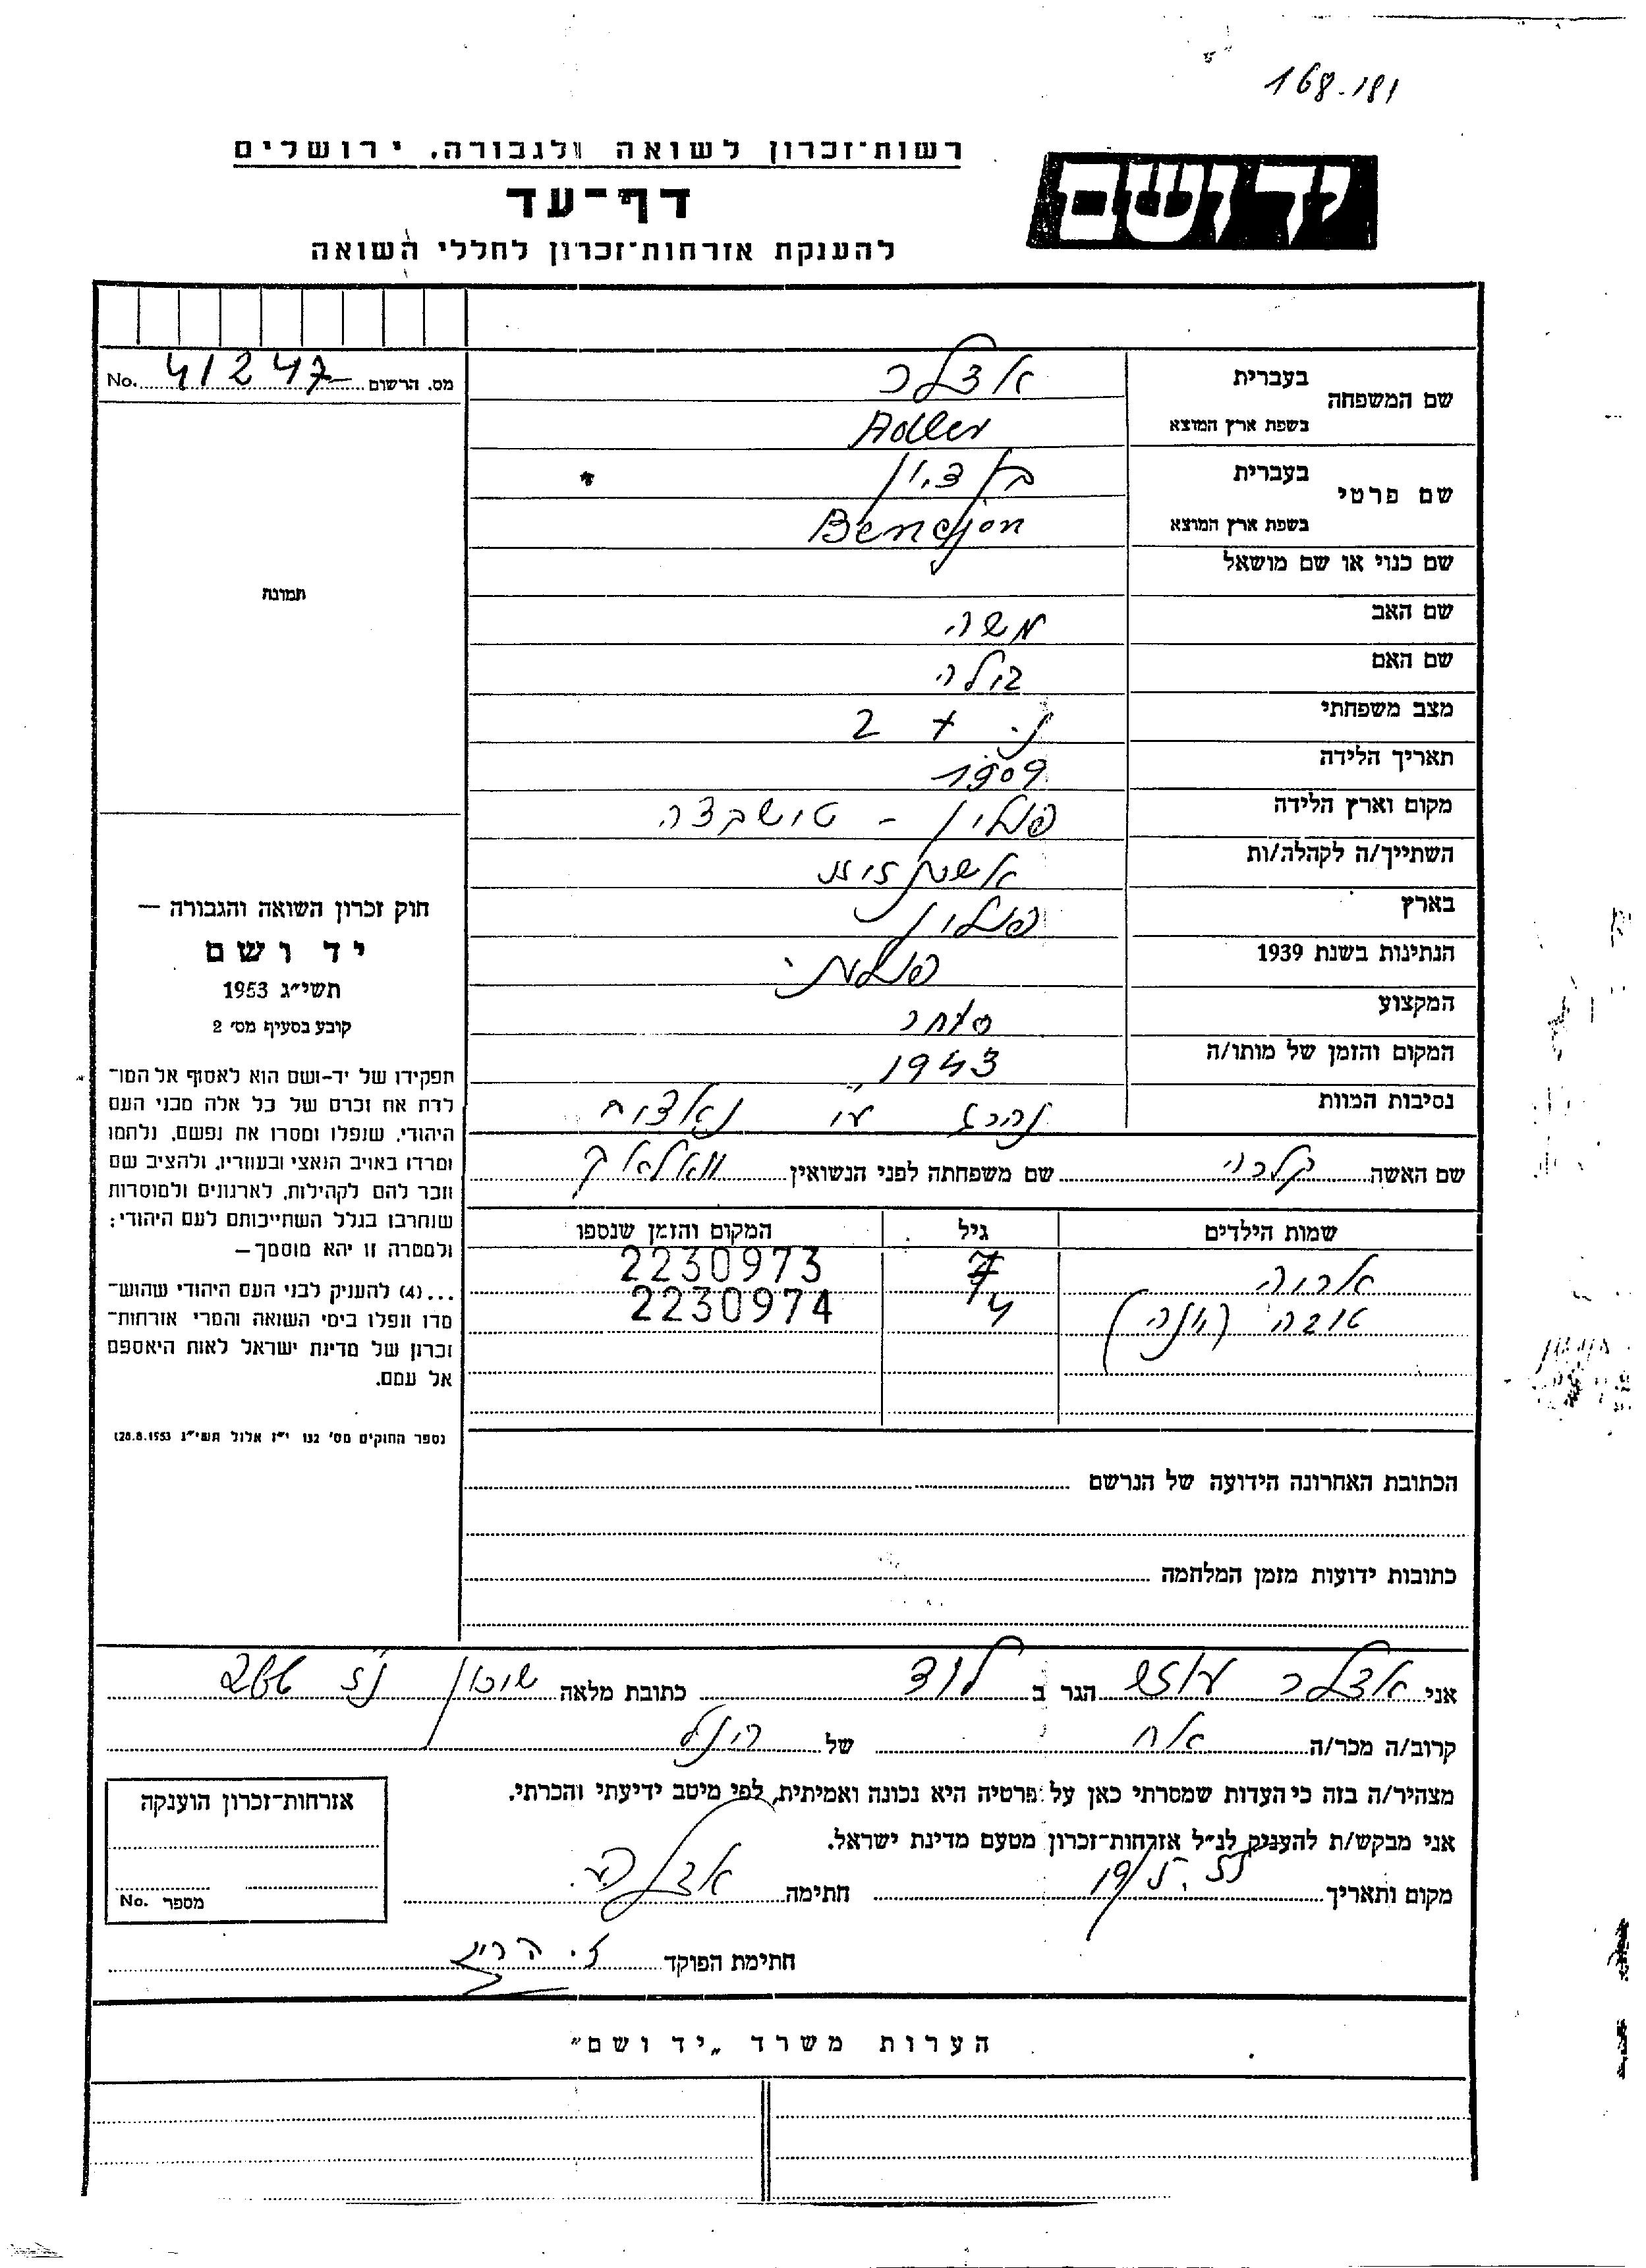 168-181
יד ושם
רשות־זכרון לשואה ולגבורה, ירושלים
דף־עד
להענקת אזרחות־זכרון לחללי השואה
מס. הרשום 41247 No.
שם המשפחה
בעברית אדלר
בשפת ארץ המוצא Adler
שם פרטי
בעברית בן ציון
בשפת ארץ המוצא
שם כנוי או שם מושאל
שם האב משה
שם האם בילה
מצב משפחתי נ. + 2
תאריך הלידה 1909
מקום וארץ הלידה פולין -
השתייך/ה לקהלה/ות
בארץ פולין
הנתינות בשנת 1939 פולנית
המקצוע סוחר
המקום והזמן של מותו/ה 1943
נסיבות המוות נהרג ע"י
שם האשה קלרה שם משפחתה לפני הנשואין
שמות הילדים גיל המקום והזמן שנספו
7 2230973
טובה 4 2230974
תמונה
חוק זכרון השואה והגבורה —
יד ושם
תשי״ג 1953
קובע בסעיף מס׳ 2
תפקידו של יד-ושם הוא לאסוף אל המו־
לדת את זכרם של כל אלה מבני העם
היהודי, שנפלו ומסרו את נפשם, נלחמו
ומרדו באויב הנאצי ובעוזריו, ולהציב שם
וזכר להם לקהילות, לארגונים ולמוסדות
שנחרבו בגלל השתייכותם לעם היהודי;
ולמטרה זו יהא מוסמך—
...(4) להעניק לבני העם היהודי שהוש־
מדו ונפלו בימי השואה והמרי אזרחות־
זכרון של מדינת ישראל לאות היאספם
אל עמם.
(ספר החוקים מס׳ 132 י״ז אלול תשי״ג 28.8.1953)
הכתובת האחרונה הידועה של הנרשם
כתובות ידועות מזמן המלחמה
אני אדלר הגר ב לוד כתובת מלאה שיכון
קרוב/ה מכר/ה אח של הנ"ל
מצהיר/ה בזה כי העדות שמסרתי כאן על פרטיה היא נכונה ואמיתית, לפי מיטב ידיעתי והכרתי.
אני מבקש/ת להעניק לנ״ל אזרחות־זכרון מטעם מדינת ישראל.
מקום ותאריך חתימה
חתימת הפוקד
אזרחות־זכרון הוענקה
מספר No.
הערות משרד „יד ושם״